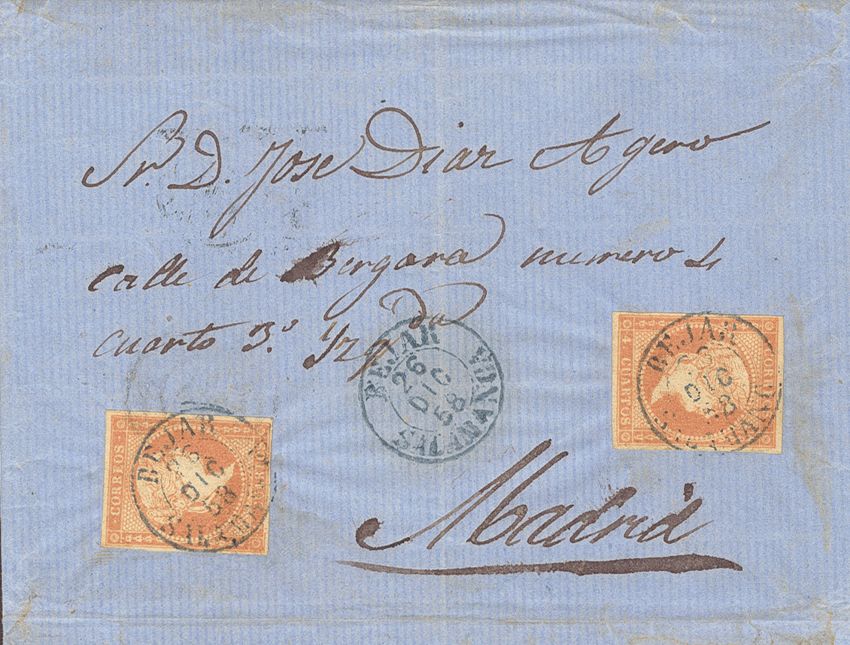 Sr. D. Jose Diaz Agero
calle de Bergara numero 4
cuarto 3.º Yzq.da
BEJAR
26
DIC
58
SALAMANCA
CORREOS
BEJAR
26
DIC
58
SALAMANCA
4 CUARTOS
CORREOS
BEJAR
26
DIC
58
SALAMANCA
Madrid